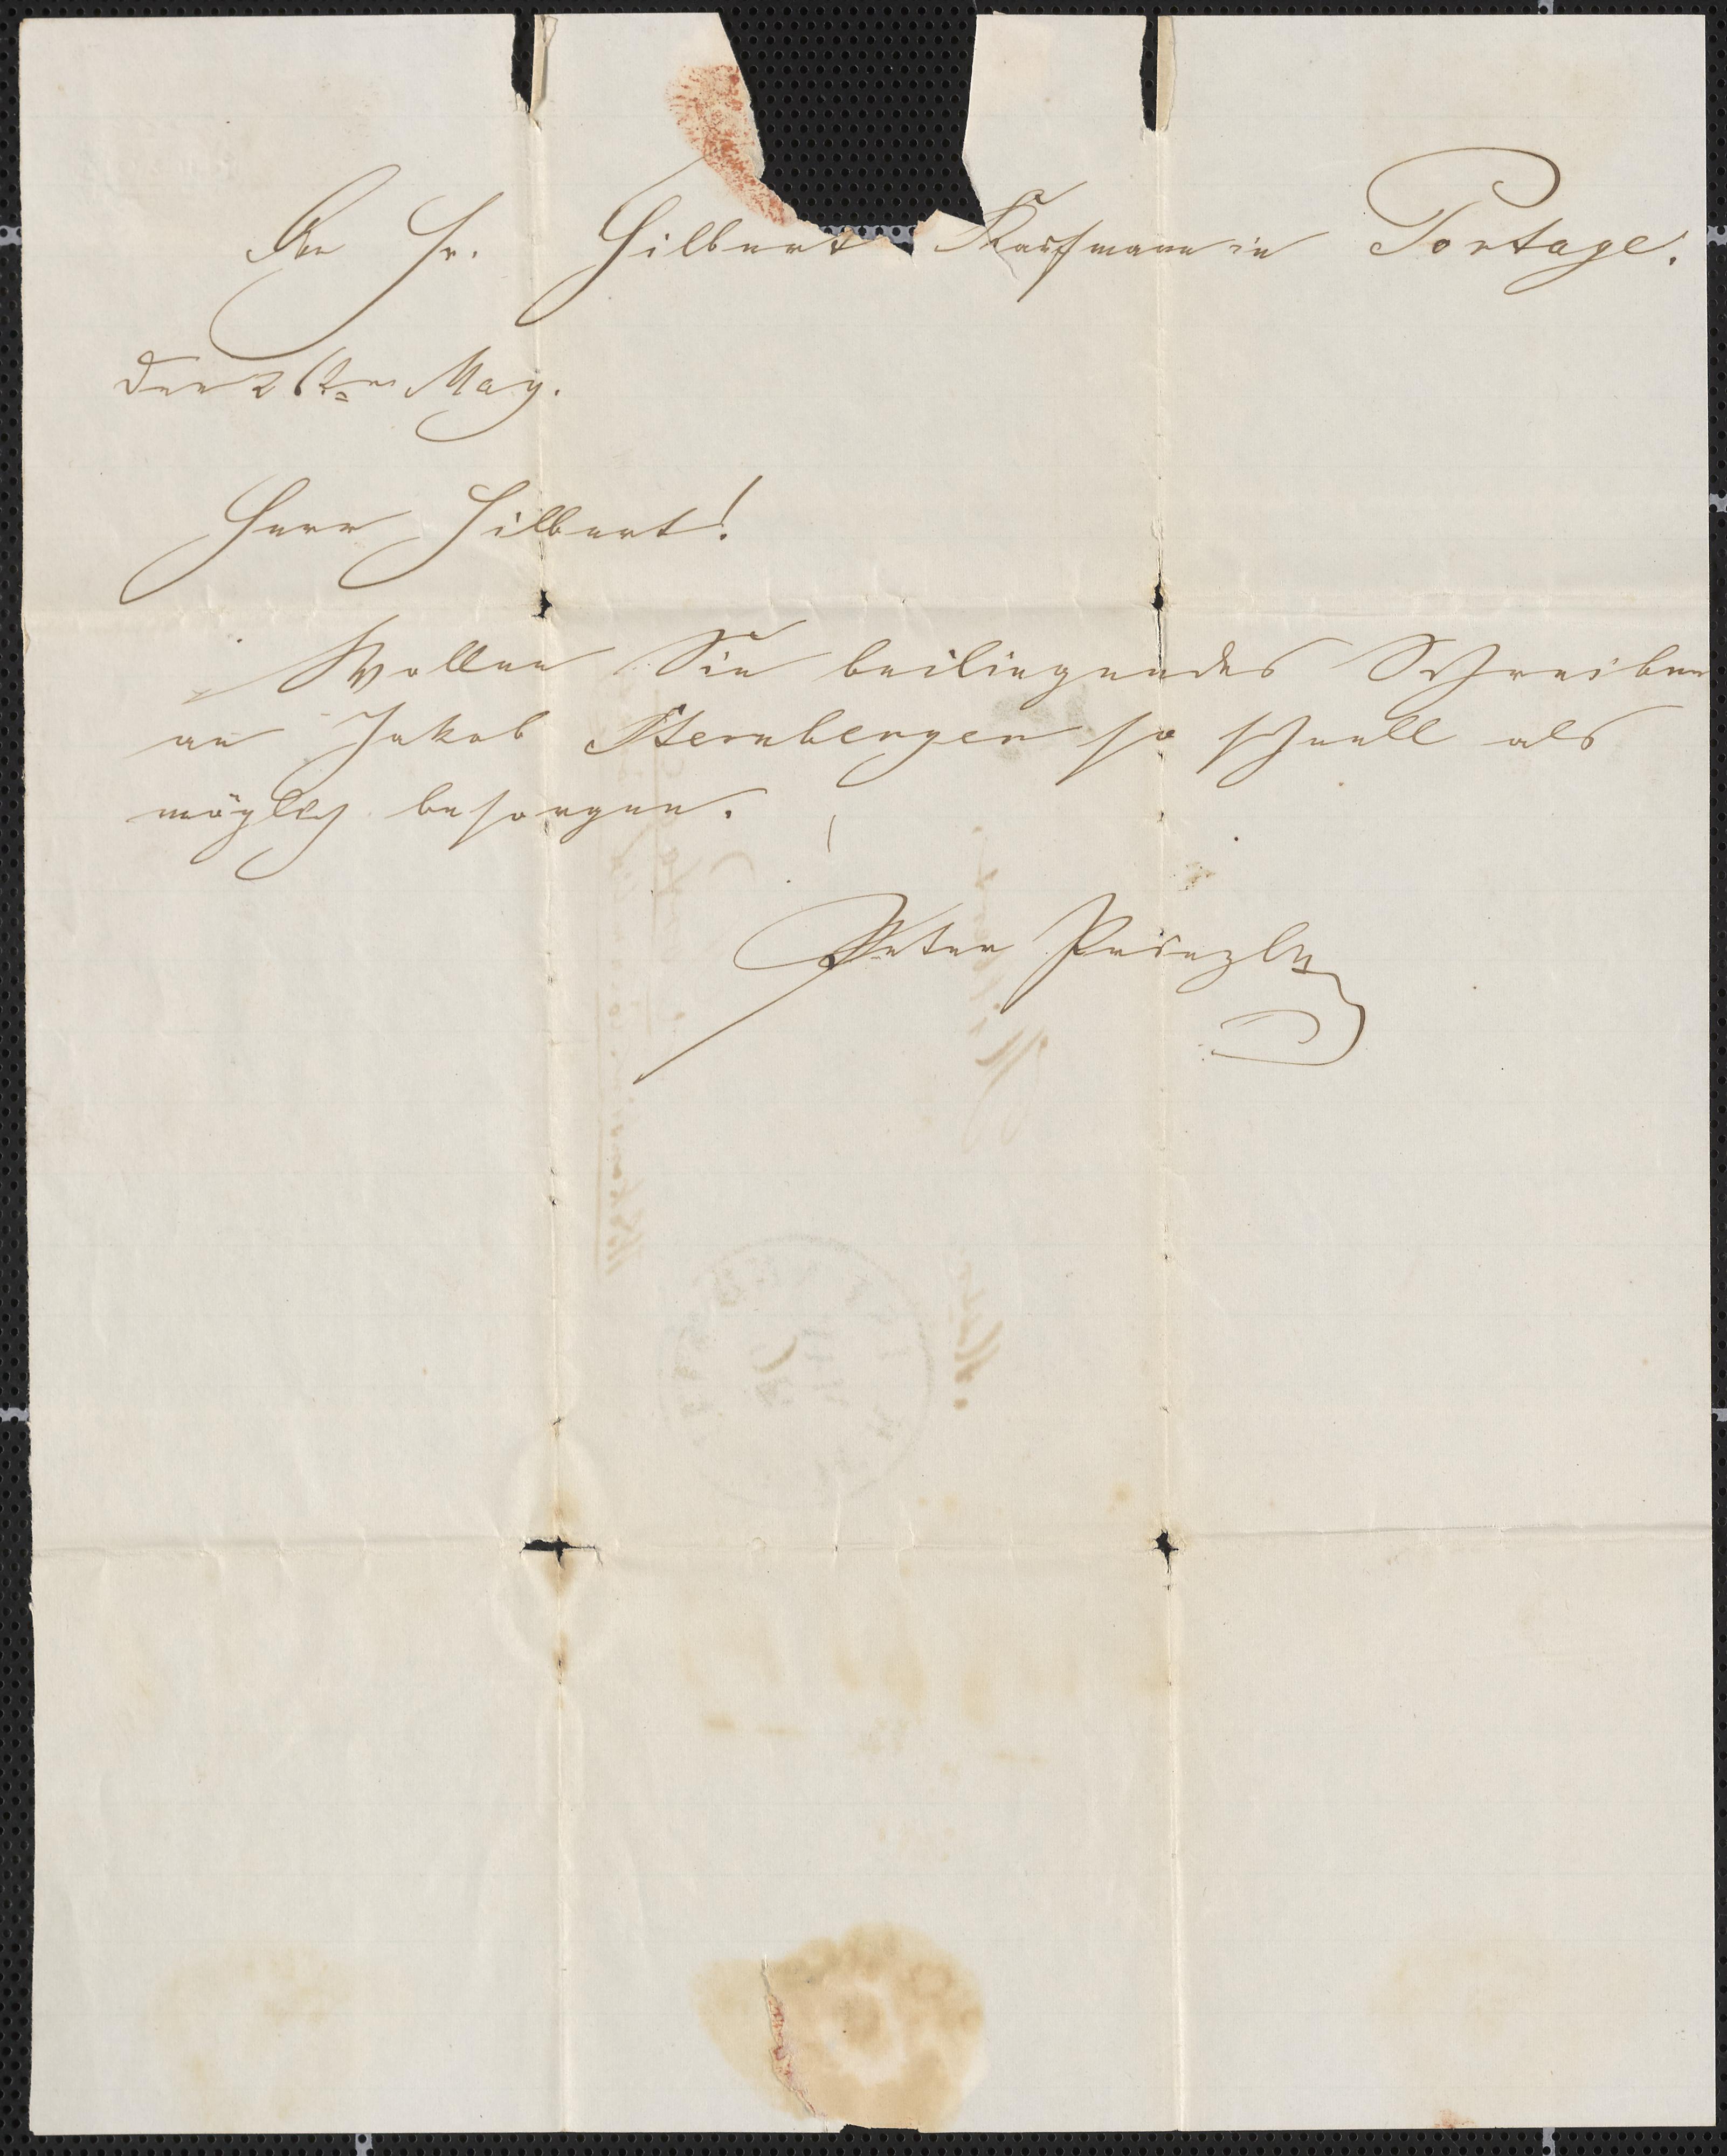 An Hr. Hilbert Kaufmann in Portage.
den 26ten May.
Herr Hilbert!
Wollen Sie beiliegendes Schreiben
an Jakob Sternberger so schnell als
möglich besorgen.
Peter